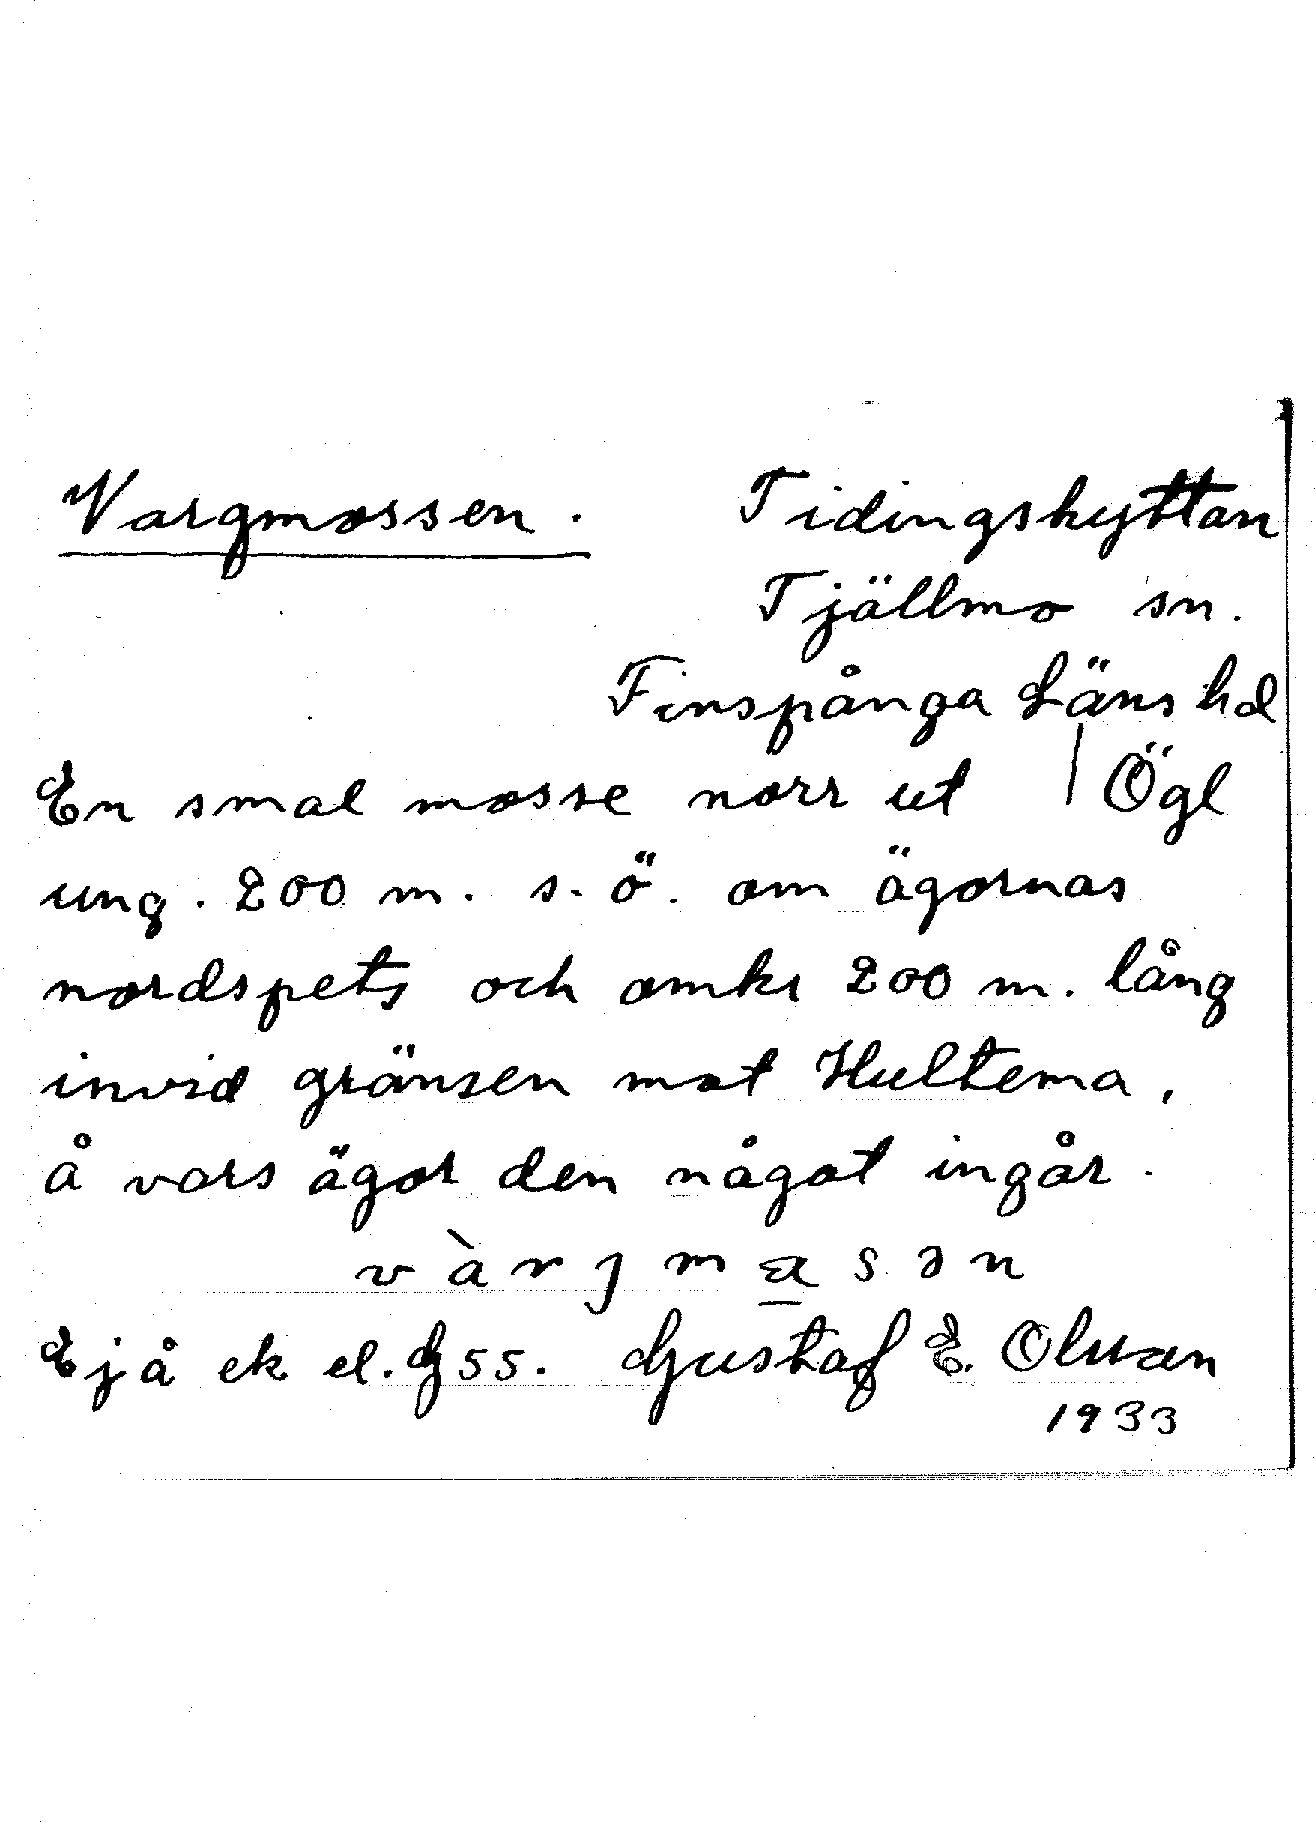 Vargmossen. Tidingshyttan
Tjällmo sn.
Finspånga Läns hd
En smal mosse norr ut / Ögl
ung. 200 m. s. ö. om ägornas
nordspets och omkr 200 m. lång
invid gränsen mot Hultema,
å vars ägor den något ingår.
vàrjmasən
Ej å ek el. Gss. Gustaf E. Olsson
1933